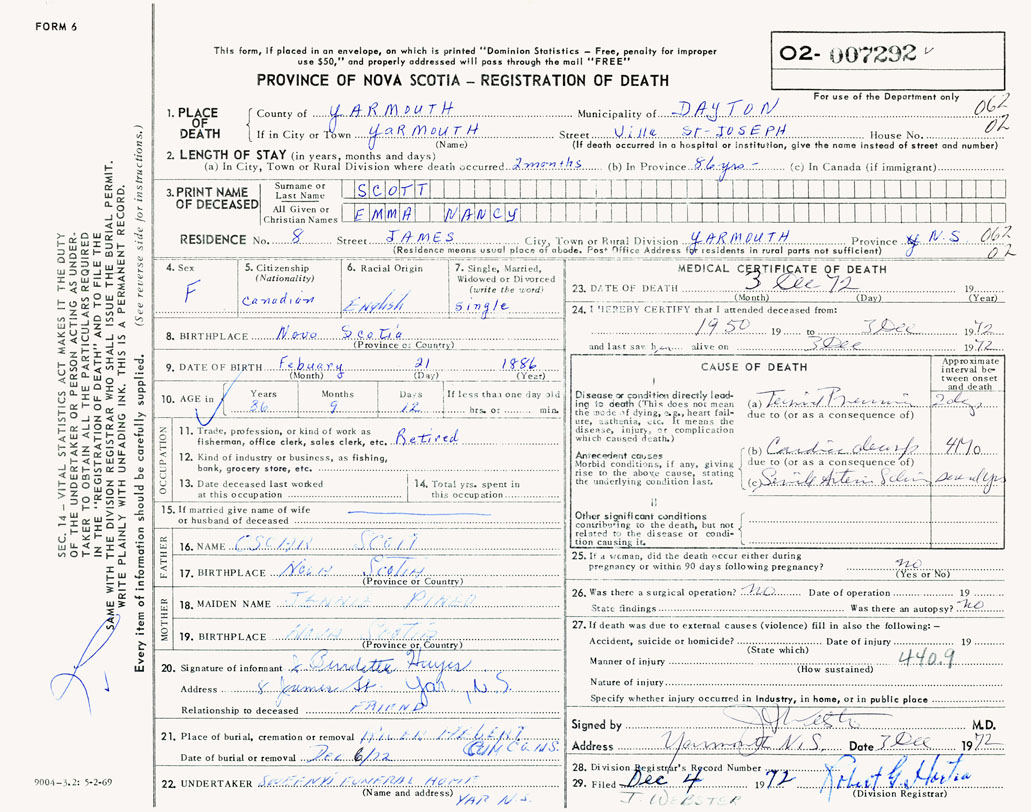 FORM 6
This form, if placed in an envelope, on which is printed "Dominion Statistics – Free, penalty for improper
use $50," and properly addressed will pass through the mail "FREE"
PROVINCE OF NOVA SCOTIA – REGISTRATION OF DEATH
O2- 007292
For use of the Department only
062
02
1. PLACE OF DEATH
County of YARMOUTH Municipality of DAYTON
If in City or Town YARMOUTH Street Villa St-JOSEPH House No.
(Name) (If death occurred in a hospital or institution, give the name instead of street and number)
2. LENGTH OF STAY (in years, months and days)
(a) In City, Town or Rural Division where death occurred 2 months (b) In Province 86 yrs – (c) In Canada (if immigrant)
3. PRINT NAME OF DECEASED
Surname or Last Name SCOTT
All Given or Christian Names EMMA NANCY
RESIDENCE No. 8 Street JAMES City, Town or Rural Division YARMOUTH Province N.S 062
02
(Residence means usual place of abode. Post Office Address for residents in rural parts not sufficient)
4. Sex F
5. Citizenship (Nationality) Canadian
6. Racial Origin English
7. Single, Married, Widowed or Divorced (write the word) Single
8. BIRTHPLACE Nova Scotia
(Province or Country)
9. DATE OF BIRTH Febuary 21 1886
(Month) (Day) (Year)
10. AGE in Years 86 Months 9 Days 12 If less than one day old hrs. or min.
OCCUPATION
11. Trade, profession, or kind of work as
fisherman, office clerk, sales clerk, etc. Retired
12. Kind of industry or business, as fishing,
bank, grocery store, etc.
13. Date deceased last worked
at this occupation
14. Total yrs. spent in
this occupation
15. If married give name of wife
or husband of deceased
FATHER
16. NAME SCOTT
17. BIRTHPLACE Nova Scotia
(Province or Country)
MOTHER
18. MAIDEN NAME JENNIE
19. BIRTHPLACE Nova Scotia
(Province or Country)
20. Signature of informant Burdette Hayes
Address 8 James St. Yar, N.S.
Relationship to deceased FRIEND
21. Place of burial, cremation or removal
Date of burial or removal Dec 6/72
22. UNDERTAKER SWEENYS FUNERAL HOME
(Name and address) YAR N.S.
MEDICAL CERTIFICATE OF DEATH
23. DATE OF DEATH 3 Dec 72 19
(Month) (Day) (Year)
24. I HEREBY CERTIFY that I attended deceased from:
1950 19 to 3 Dec 1972
and last saw h alive on 3 Dec 1972
CAUSE OF DEATH
Approximate interval between onset and death
I
Disease or condition directly leading to death (This does not mean the mode of dying, e.g., heart failure, asthenia, etc. It means the disease, injury, or complication which caused death.)
(a)
due to (or as a consequence of)
Antecedent causes
Morbid conditions, if any, giving rise to the above cause, stating the underlying condition last.
(b) 4 Mo
due to (or as a consequence of)
(c)
II
Other significant conditions
contributing to the death, but not related to the disease or condition causing it.
25. If a woman, did the death occur either during
pregnancy or within 90 days following pregnancy? no
(Yes or No)
26. Was there a surgical operation? no Date of operation 19
State findings Was there an autopsy? no
27. If death was due to external causes (violence) fill in also the following: –
Accident, suicide or homicide? Date of injury 19
(State which)
Manner of injury 440.9
(How sustained)
Nature of injury
Specify whether injury occurred in Industry, in home, or in public place
Signed by M.D.
Address Yarmouth N.S. Date 3 Dec 1972
28. Division Registrar's Record Number
29. Filed Dec 4 1972
J. WEBSTER
(Division Registrar)
SEC. 14 – VITAL STATISTICS ACT MAKES IT THE DUTY
OF THE UNDERTAKER OR PERSON ACTING AS UNDER-
TAKER TO OBTAIN ALL THE PARTICULARS REQUIRED
IN THE "REGISTRATION OF DEATH" AND TO FILE THE
SAME WITH THE DIVISION REGISTRAR WHO SHALL ISSUE THE BURIAL PERMIT.
WRITE PLAINLY WITH UNFADING INK. THIS IS A PERMANENT RECORD.
Every item of information should be carefully supplied. (See reverse side for instructions.)
9004-3.2: 5-2-69